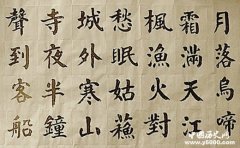 月落烏啼
霜滿天江
楓漁火對
愁眠姑蘇
城外寒山
寺夜半鐘
聲到客船
中国历史网
y5000.com